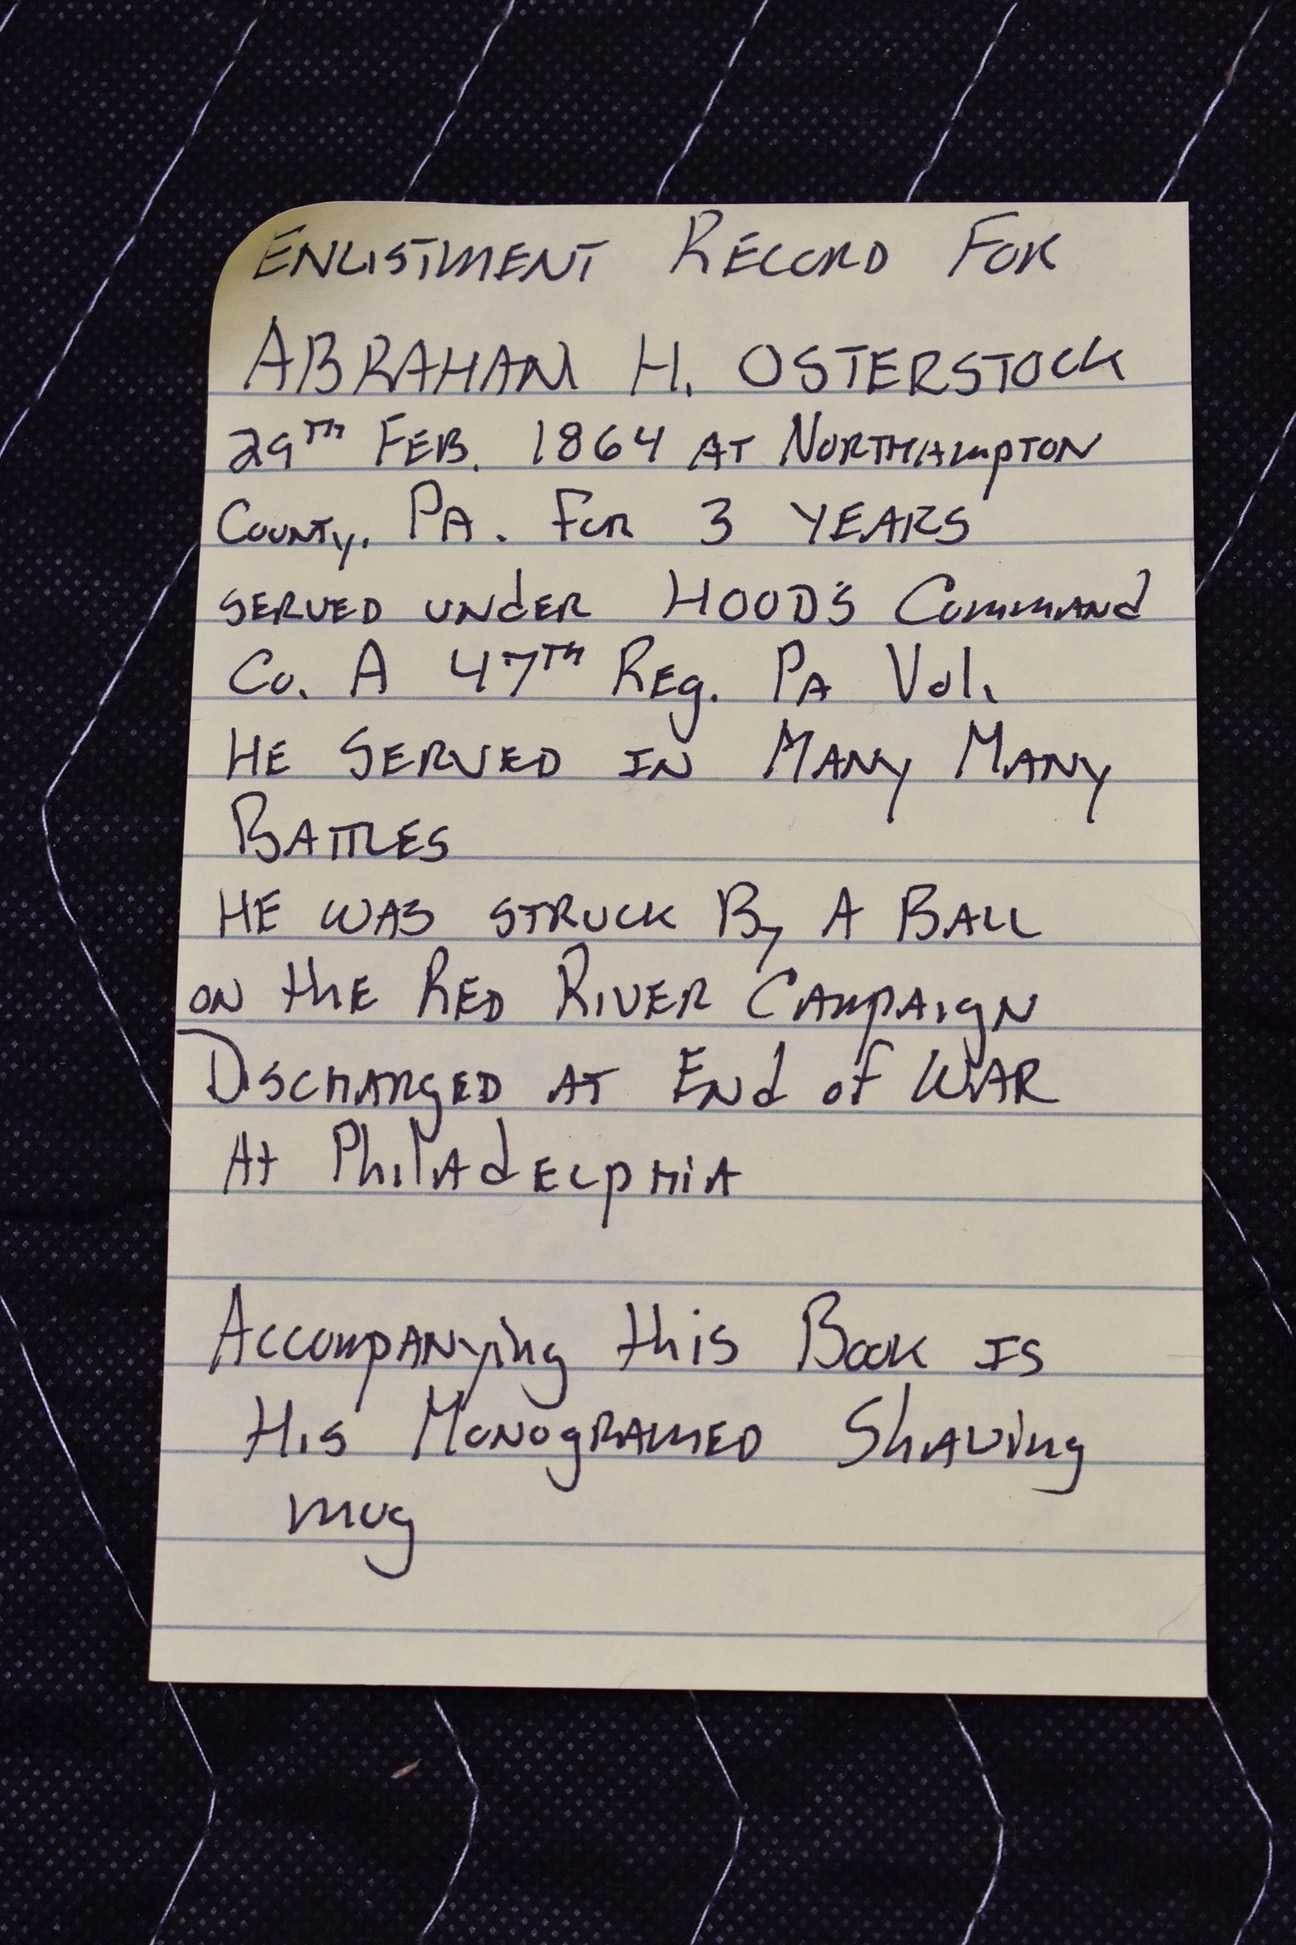 ENLISTMENT RECORD FOR
ABRAHAM H. OSTERSTOCK
29TH FEB. 1864 AT NORTHAMPTON
COUNTY, PA. FOR 3 YEARS
SERVED UNDER HOOD'S COMMAND
Co. A 47TH REg. PA Vol.
HE SERVED IN MANY MANY
BATTLES
HE WAS STRUCK By A BALL
ON thE RED RIVER CAMPAIGN
DISCHARGED AT END of WAR
At PhilAdELPHiA
Accompanying this Book IS
His MONOGRAMED Shaving
mug